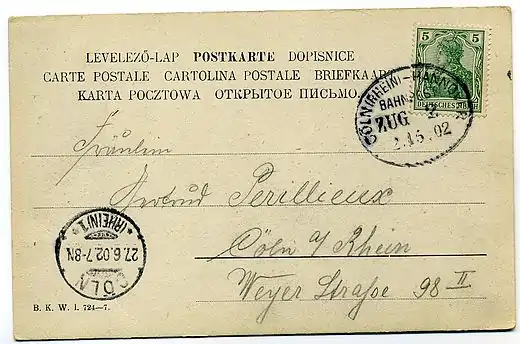 LEVELEZŐ-LAP POSTKARTE DOPISNICE
CARTE POSTALE CARTOLINA POSTALE BRIEFKAAR
KARTA POCZTOWA ОТКРЫТОЕ ПИСЬМО.
5 5
DEUTSCHES REICH
CÖLN (RHEIN)-HANNOVER
BAHNP
ZUG 2
02
Fräulein
Gertrud Perillieux
Cöln a/Rhein
Weyer Straße 98 II
CÖLN
27.6.02.7-8N.
*(RHEIN)1*
B. K. W. I. 724-7.